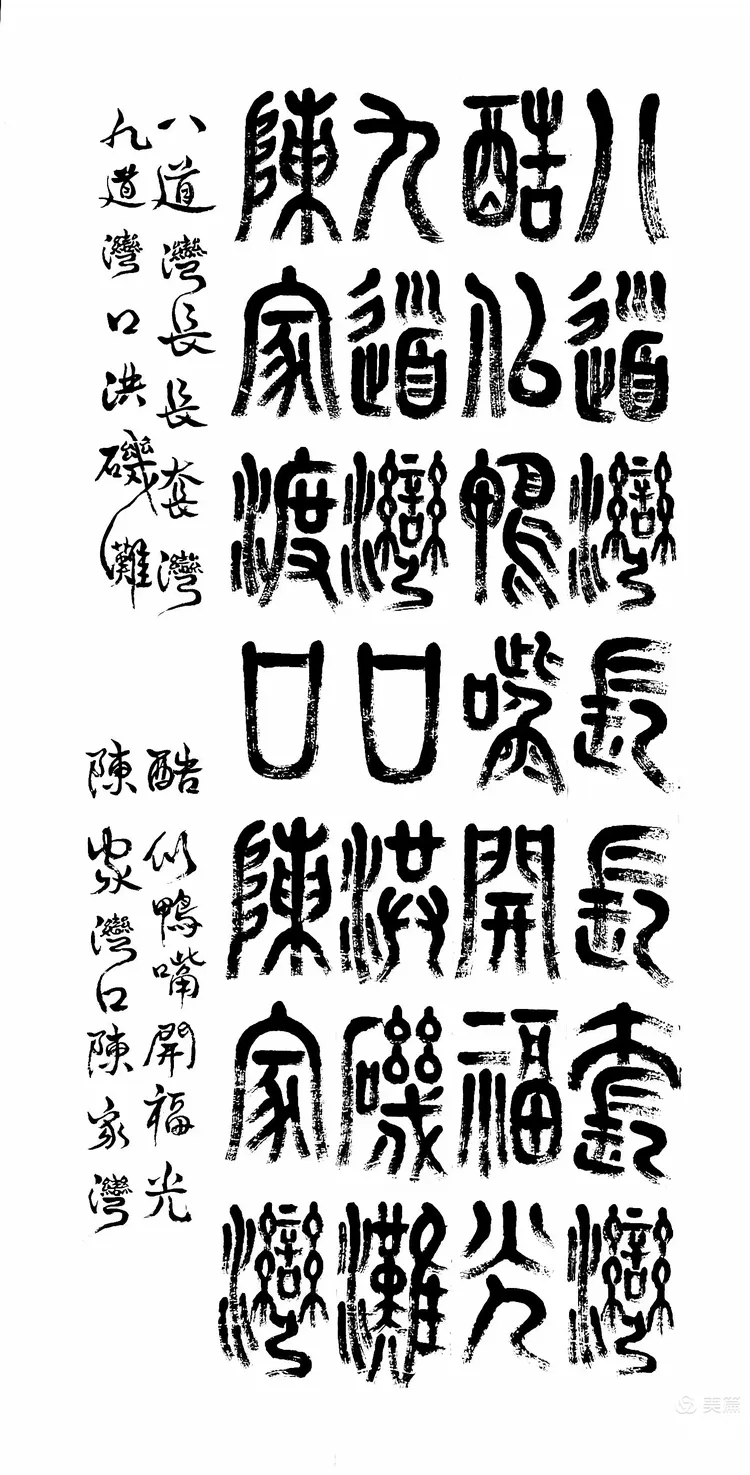 八道灣長長套灣
酷似鴨嘴開福光
九道灣口洪磯灘
陳家渡口陳家灣
八道灣長長套灣
酷似鴨嘴開福光
九道灣口洪磯灘
陳家灣口陳家灣
美篇